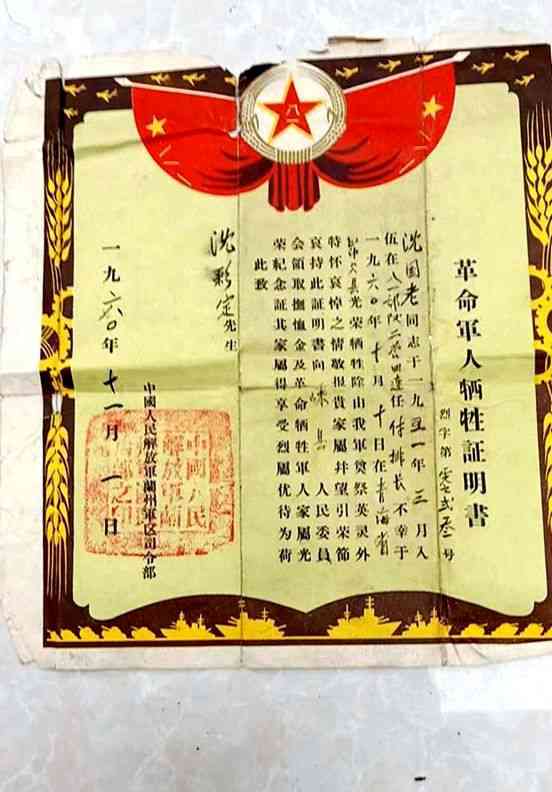 革命軍人牺牲証明書
烈字第零七弍叁号
沈国老同志于一九五一年三月入
伍在八一部队二营四連任付排长不幸于
一九六〇年十月十日在青海省
光荣牺牲除由我軍奠祭英灵外
特怀哀悼之情敬报貴家屬幷望引荣節
哀持此証明書向 县人民委員
会領取撫恤金及革命牺牲軍人家屬光
荣紀念証其家屬得享受烈屬优待为荷
此致
沈彩定先生
中國人民解放軍蘭州軍区司令部
一九六〇年十一月一日